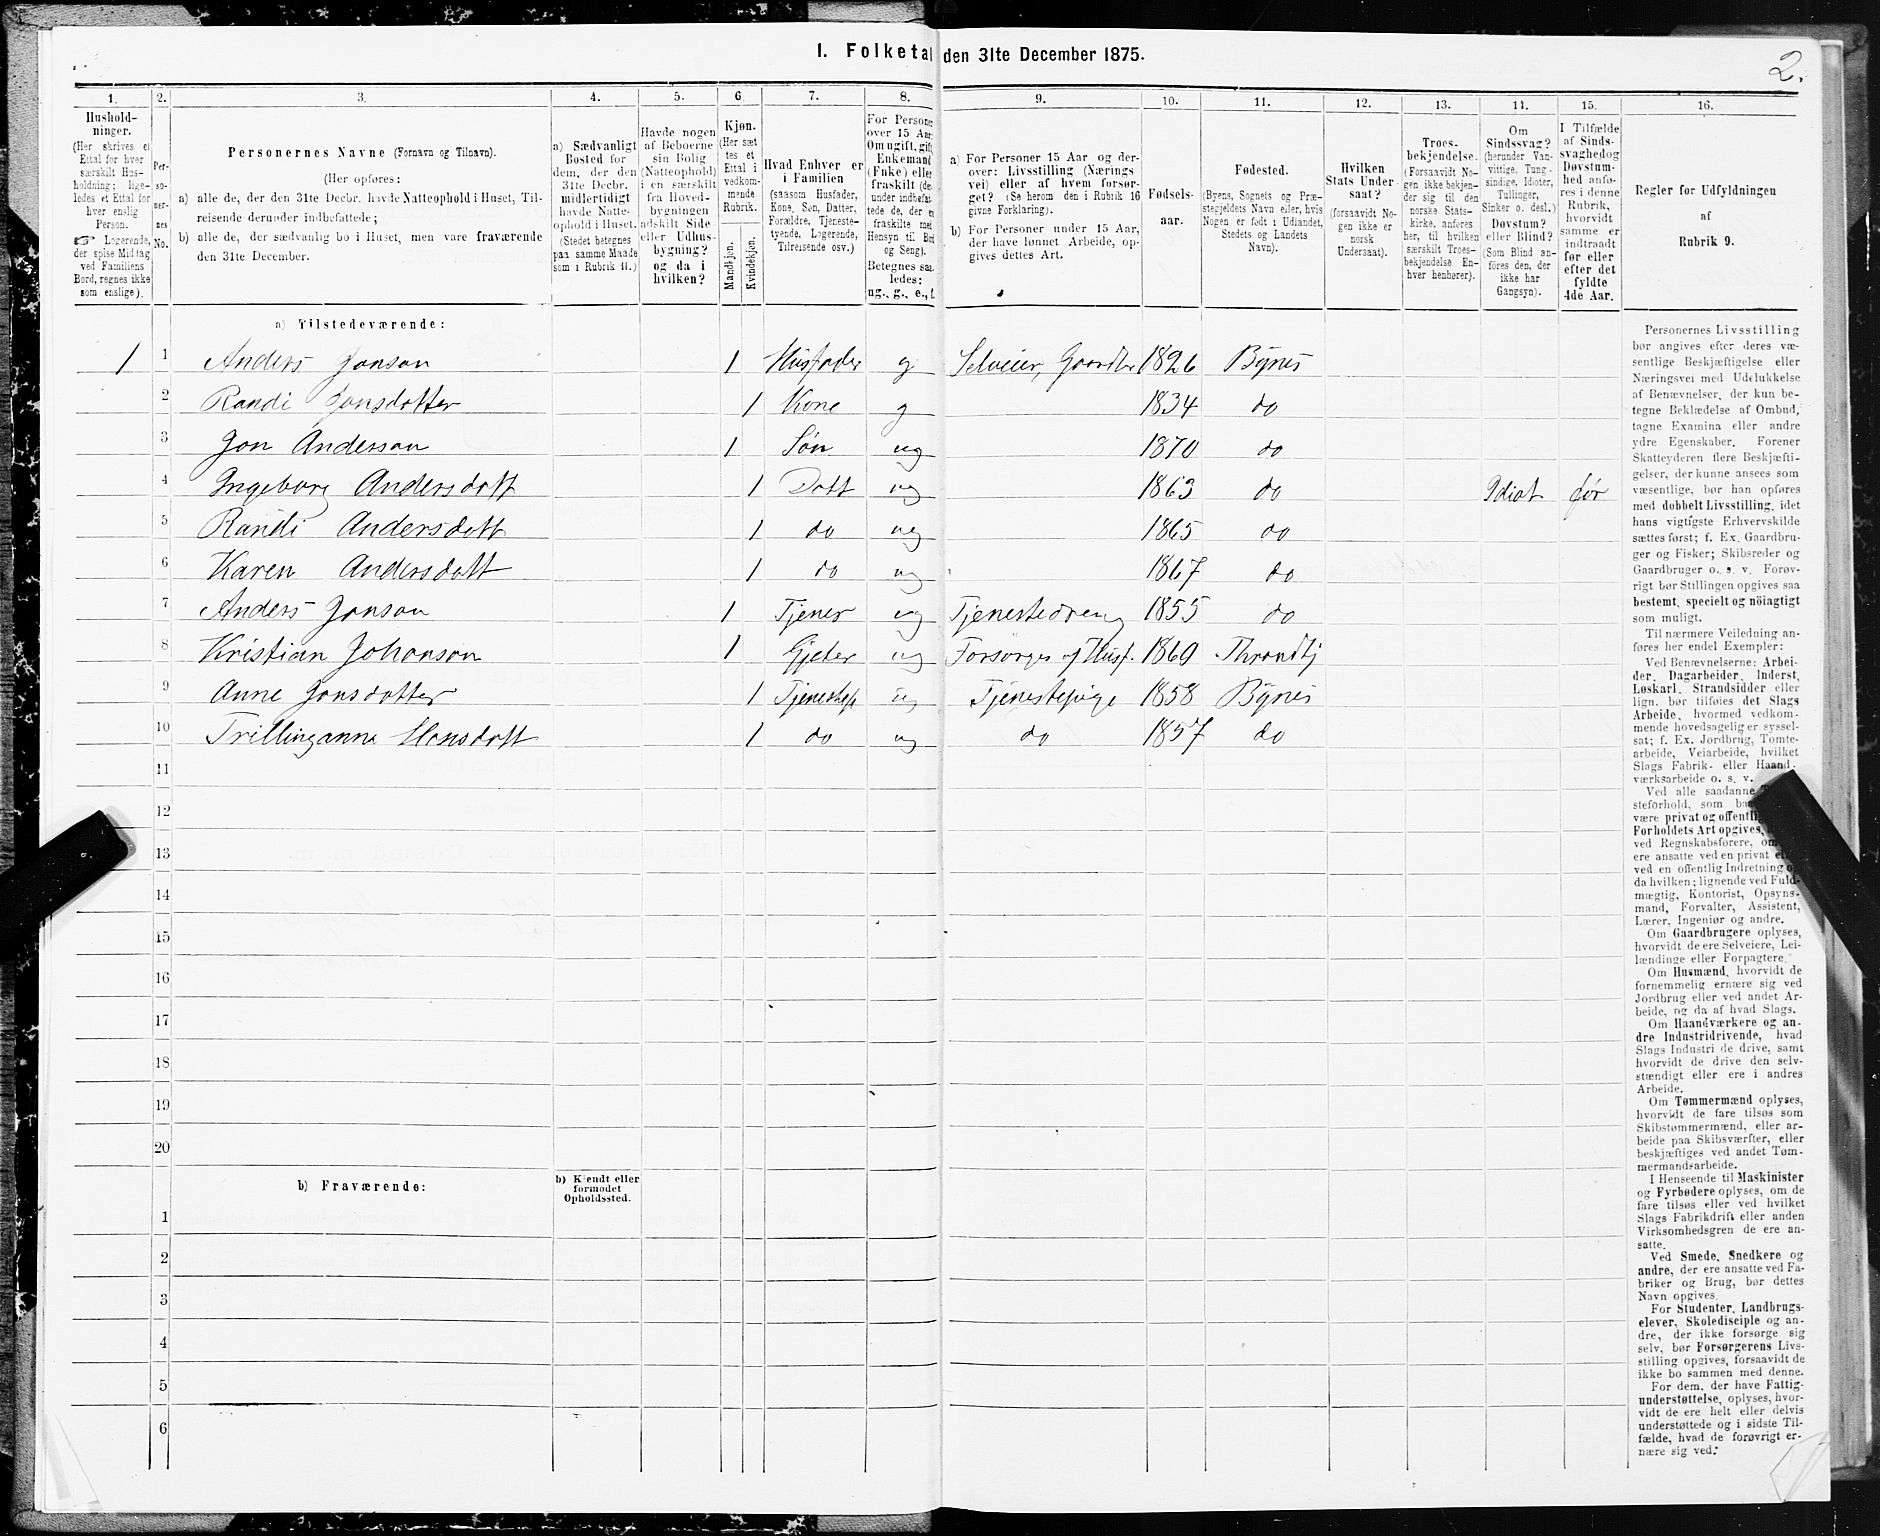 1. Folketal den 31te December 1875.
2.
1. 2. 3. 4. 5. 6. 7. 8. 9. 10. 11. 12. 13. 14. 15. 16.
Hushold-
ninger.
(Her skrives et
Ettal for hver
særskilt Hus-
holdning; lige-
ledes et Ettal for
hver enslig
Person.
☞ Logerende,
der spise Middag
ved Familiens
Bord, regnes ikke
som enslige).
Per-
so-
ner-
nes
No.
Personernes Navne (Fornavn og Tilnavn).
(Her opføres:
a) alle de, der den 31te Decbr. havde Natteophold i Huset, Til-
reisende derunder indbefattede;
b) alle de, der sædvanlig bo i Huset, men vare fraværende
den 31te December.
a) Sædvanligt
Bosted for
dem, der den
31te Decbr.
midlertidigt
havde Natte-
ophold i Huset.
(Stedet betegnes
paa samme Maade
som i Rubrik 11.)
Havde nogen
af Beboerne
sin Bolig
(Natteophold)
i en særskilt
fra Hoved-
bygningen
adskilt Side
eller Udhus-
bygning?
og da i
hvilken?
Kjøn.
(Her sæt
tes et
Ettal i
vedkom-
mende
Rubrik.
Mandkjøn.
Kvindekjøn.
Hvad Enhver er
i Familien
(saasom Husfader,
Kone, Søn, Datter,
Forældre, Tjeneste-
tyende, Logerende,
Tilreisende osv.)
For Persone
over 15 Aar
Om ugift, gift
Enkemand
(Enke) eller
fraskilt (de
under indbefat-
tede de, der
fraskilte med
Hensyn til Bord
og Seng).
Betegnes saa
ledes:
ug., g., e.,
a) For Personer 15 Aar og der-
over: Livsstilling (Nærings
vei) eller af hvem forsør-
get? (Se herom den i Rubrik 16
givne Forklaring).
b) For Personer under 15 Aar,
der have lønnet Arbeide, op-
gives dettes Art.
Fødsels-
aar.
Fødested.
(Byens, Sognets og Præ-
stegjeldets Navn eller, hvis
Nogen er født i Udlandet,
Stedets og Landets
Navn).
Hvilken
Stats Under
saat?
(forsaavidt No-
gen ikke er
norsk
Undersaat).
Troes-
bekjendelse.
(Forsaavidt No-
gen ikke bekjen-
der sig til den
norske Stats-
kirke, anføres
her, til hvilken
særskilt Troes-
bekjendelse En-
hver henhører).
Om
Sindssvag?
(herunder Van-
vittige, Tung-
sindige, Idioter,
Tullinger,
Sinker o. desl.)
Døvstum?
eller Blind?
(Som Blind an-
føres den, der
ikke har
Gangsyn).
I Tilfælde
af Sinds-
svaghed og
Døvstum-
hed anfø-
res i denne
Rubrik,
hvorvidt
samme er
indtraadt
før eller
efter det
fyldte
4de Aar.
Regler for Udfyldningen
af
Rubrik 9.
a) Tilstedeværende:
1 1 Anders Jonson 1 Husfader g Selveier, Gaardbr 1826 Bynes
2 Randi Jonsdotter 1 Kone g 1834 do
3 Jon Anderson 1 Søn ug 1870 do
4 Ingeborg Andersdatt 1 Datt ug 1863 do Idiot før
5 Randi Andersdatt 1 do ug 1865 do
6 Karen Andersdatt 1 do ug 1867 do
7 Anders Jonson 1 Tjener ug Tjenestedreng 1855 do
8 Kristian Johanson 1 Gjeter ug Forsørges af Husf. 1869 Throndhj
9 Anne Jonsdotter 1 Tjenestep ug Tjenestepige 1858 Bynes
10 Trillinganna Hansdatt 1 do ug do 1857 do
11
12
13
14
15
16
17
18
19
20
b) Fraværende:
b) Kjendt eller
formodet
Opholdssted.
1
2
3
4
5
6
Personernes Livsstilling
bør angives efter deres væ-
sentlige Beskjæftigelse eller
Næringsvei med Udelukkelse
af Benævnelser, der kun be-
tegne Beklædelse af Ombud,
tagne Examina eller andre
ydre Egenskaber. Forener
Skatteyderen flere Beskjæfti-
gelser, der kunne ansees som
væsentlige, bør han opføres
med dobbelt Livsstilling, idet
hans vigtigste Erhvervskilde
sættes først; f. Ex. Gaardbru-
ger og Fisker; Skibsreder og
Gaardbruger o. s. v. Forøv-
rigt bør Stillingen opgives saa
bestemt, specielt og nöiagtigt
som muligt.
Til nærmere Veiledning an-
føres her endel Exempler:
Ved Benævnelserne: Arbei-
der, Dagarbeider, Inderst,
Løskarl, Strandsidder eller
lign. bør tilføies det Slags
Arbeide, hvormed vedkom-
mende hovedsagelig er syssel-
sat; f. Ex. Jordbrug, Tomte-
arbeide, Veiarbeide, hvilket
Slags Fabrik- eller Haand-
værksarbeide o. s. v.
Ved alle saadanne
steforhold, som
være privat og offentlig
Forholdets Art opgives,
ved Regnskabsførere, om
ere ansatte ved en privat
ved en offentlig Indretning
da hvilken; lignende ved Fuld-
mægtig, Kontorist, Opsyns-
mand, Forvalter, Assistent,
Lærer, Ingeniør og andre.
Om Gaardbrugere oplyses,
hvorvidt de ere Selveiere, Lei-
lændinge eller Forpagtere.
Om Husmænd, hvorvidt de
fornemmelig ernære sig ved
Jordbrug eller ved andet Ar-
beide, og da af hvad Slags.
Om Haandværkere og an-
dre Industridrivende, hvad
Slags Industri de drive, samt
hvorvidt de drive den selv-
stændigt eller ere i andres
Arbeide.
Om Tømmermænd oplyses,
hvorvidt de fare tilsøs som
Skibstømmermænd, eller ar-
beide paa Skibsværfter, eller
beskjæftiges ved andet Tøm-
mermandsarbeide.
I Henseende til Maskinister
og Fyrbødere oplyses, om de
fare tilsøs eller ved hvilket
Slags Fabrikdrift eller anden
Virksomhedsgren de ere an-
satte.
Ved Smede, Snedkere og
andre, der ere ansatte ved Fa-
briker og Brug, bør dettes
Navn opgives.
For Studenter, Landbrugs-
elever, Skoledisciple og an-
dre, der ikke forsørge sig
selv, bør Forsørgerens Livs-
stilling opgives, forsaavidt de
ikke bo sammen med denne.
For dem, der have Fattig-
understøttelse, oplyses, hvor-
vidt de ere helt eller delvis
understøttede og i sidste Til-
fælde, hvad de forøvrigt er-
nære sig ved.